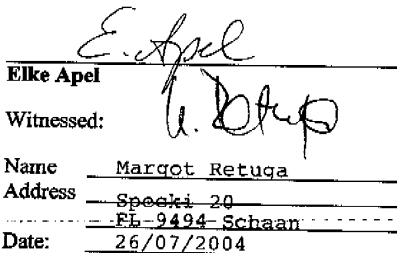 E. Apel
Elke Apel
Witnessed:
Name Margot Retuga
Address Specki 20
FL-9494 Schaan
Date: 26/07/2004